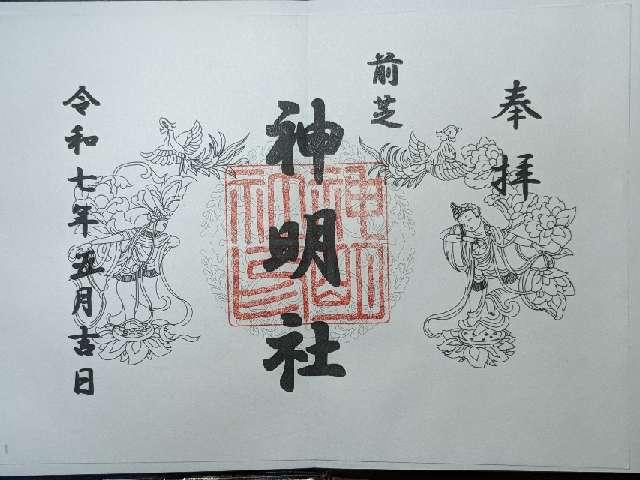 奉拝
前芝
神明社
令和七年五月吉日